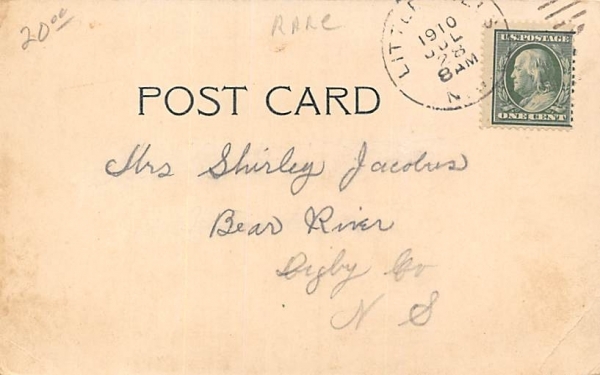 20 00
RARE
LITTLE
1910
JUL
28
8 AM
N.
U.S. POSTAGE
ONE CENT
POST CARD
Mrs Shirley Jacobus
Bear River
Digby Co
N S